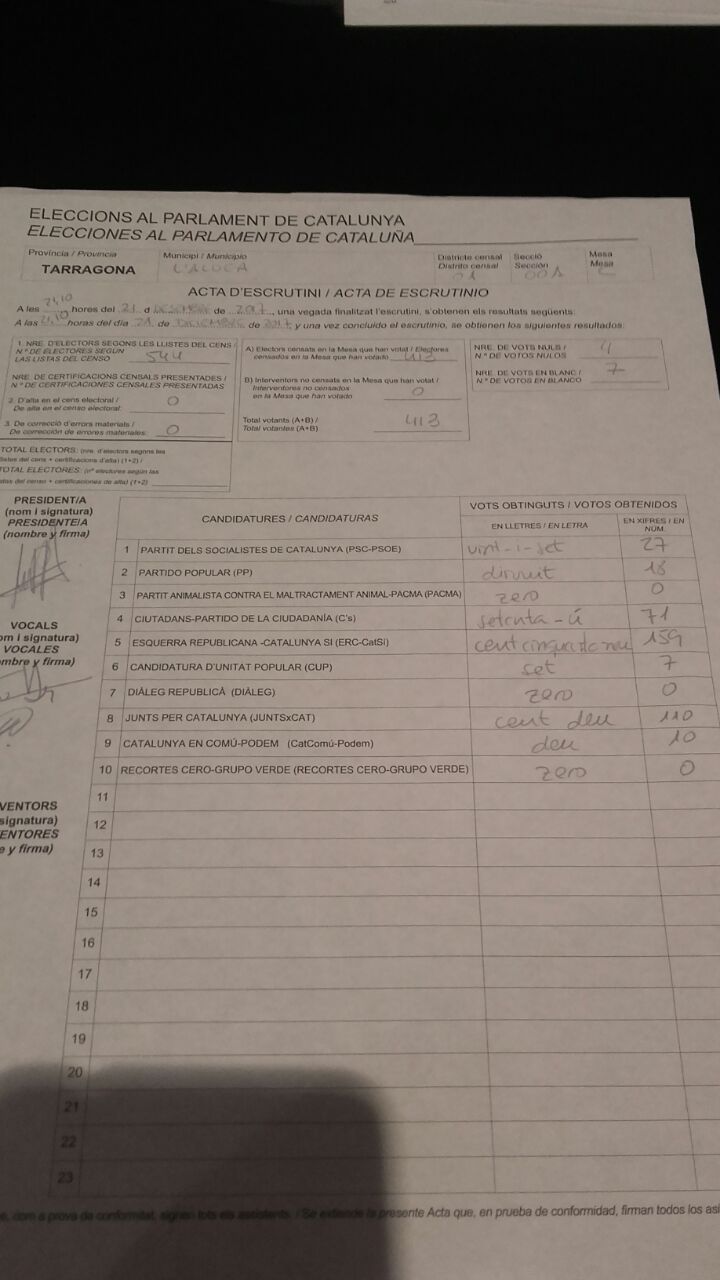 ELECCIONS AL PARLAMENT DE CATALUNYA
ELECCIONES AL PARLAMENTO DE CATALUÑA
Província / Provincia
TARRAGONA
Municipi / Municipio
Districte censal
Distrito censal
01
Secció
Sección
001
Mesa
Mesa
ACTA D'ESCRUTINI / ACTA DE ESCRUTINIO
A les 21,10 hores del 21 d de 2017, una vegada finalitzat l'escrutini, s'obtenen els resultats següents:
A las 21,10 horas del día 21 de de 2017 y una vez concluido el escrutinio, se obtienen los siguientes resultados:
1. NRE. D'ELECTORS SEGONS LES LLISTES DEL CENS /
N.º DE ELECTORES SEGÚN
LAS LISTAS DEL CENSO 544
NRE. DE CERTIFICACIONS CENSALS PRESENTADES /
N.º DE CERTIFICACIONES CENSALES PRESENTADAS
2. D'alta en el cens electoral /
De alta en el censo electoral: 0
3. De correcció d'errors materials /
De corrección de errores materiales: 0
TOTAL ELECTORS: (nre. d'electors segons les
llistes del cens + certificacions d'alta) (1+2) /
TOTAL ELECTORES: (nº electores según las
listas del censo + certificaciones de alta) (1+2)
A) Electors censats en la Mesa que han votat / Electores
censados en la Mesa que han votado 413
B) Interventors no censats en la Mesa que han votat /
Interventores no censados
en la Mesa que han votado 0
Total votants (A+B) /
Total votantes (A+B) 413
NRE. DE VOTS NULS /
N.º DE VOTOS NULOS 4
NRE. DE VOTS EN BLANC /
N.º DE VOTOS EN BLANCO 7
PRESIDENT/A
(nom i signatura)
PRESIDENTE/A
(nombre y firma)
VOCALS
om i signatura)
VOCALES
mbre y firma)
VENTORS
signatura)
ENTORES
e y firma)
CANDIDATURES / CANDIDATURAS
VOTS OBTINGUTS / VOTOS OBTENIDOS
EN LLETRES / EN LETRA
EN XIFRES / EN NÚM.
1 PARTIT DELS SOCIALISTES DE CATALUNYA (PSC-PSOE) vint-i-set 27
2 PARTIDO POPULAR (PP) divuit 18
3 PARTIT ANIMALISTA CONTRA EL MALTRACTAMENT ANIMAL-PACMA (PACMA) zero 0
4 CIUTADANS-PARTIDO DE LA CIUDADANÍA (C's) setenta-ú 71
5 ESQUERRA REPUBLICANA -CATALUNYA SÍ (ERC-CatSí) cent cinquanta nou 159
6 CANDIDATURA D'UNITAT POPULAR (CUP) set 7
7 DIÀLEG REPUBLICÀ (DIÀLEG) zero 0
8 JUNTS PER CATALUNYA (JUNTSxCAT) cent deu 110
9 CATALUNYA EN COMÚ-PODEM (CatComú-Podem) deu 10
10 RECORTES CERO-GRUPO VERDE (RECORTES CERO-GRUPO VERDE) zero 0
11
12
13
14
15
16
17
18
19
20
21
22
23
com a prova de conformitat, signen tots els assistents. / Se extiende la presente Acta que, en prueba de conformidad, firman todos los asi